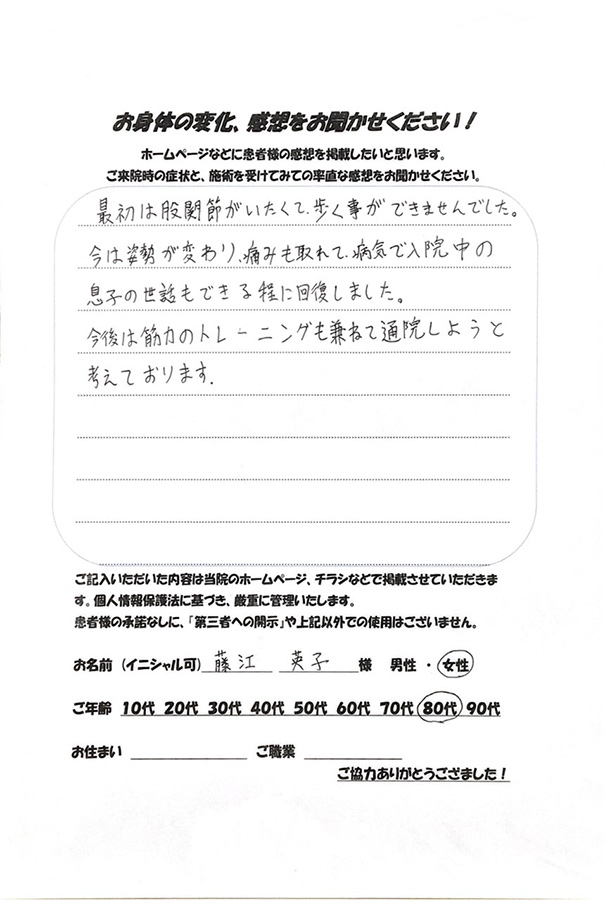 お身体の変化、感想をお聞かせください!
ホームページなどに患者様の感想を掲載したいと思います。
ご来院時の症状と、施術を受けてみての率直な感想をお聞かせください。
最初は股関節がいたくて、歩く事ができませんでした。
今は姿勢が変わり、痛みも取れて、病気で入院中の
息子の世話もできる程に回復しました。
今後は筋力のトレーニングも兼ねて通院しようと
考えております。
ご記入いただいた内容は当院のホームページ、チラシなどで掲載させていただきま
す。個人情報保護法に基づき、厳重に管理いたします。
患者様の承諾なしに、「第三者への開示」や上記以外での使用はございません。
お名前(イニシャル可) 藤江 英子 様 男性・女性
ご年齢 10代 20代 30代 40代 50代 60代 70代 80代 90代
お住まい ご職業
ご協力ありがとうござました!